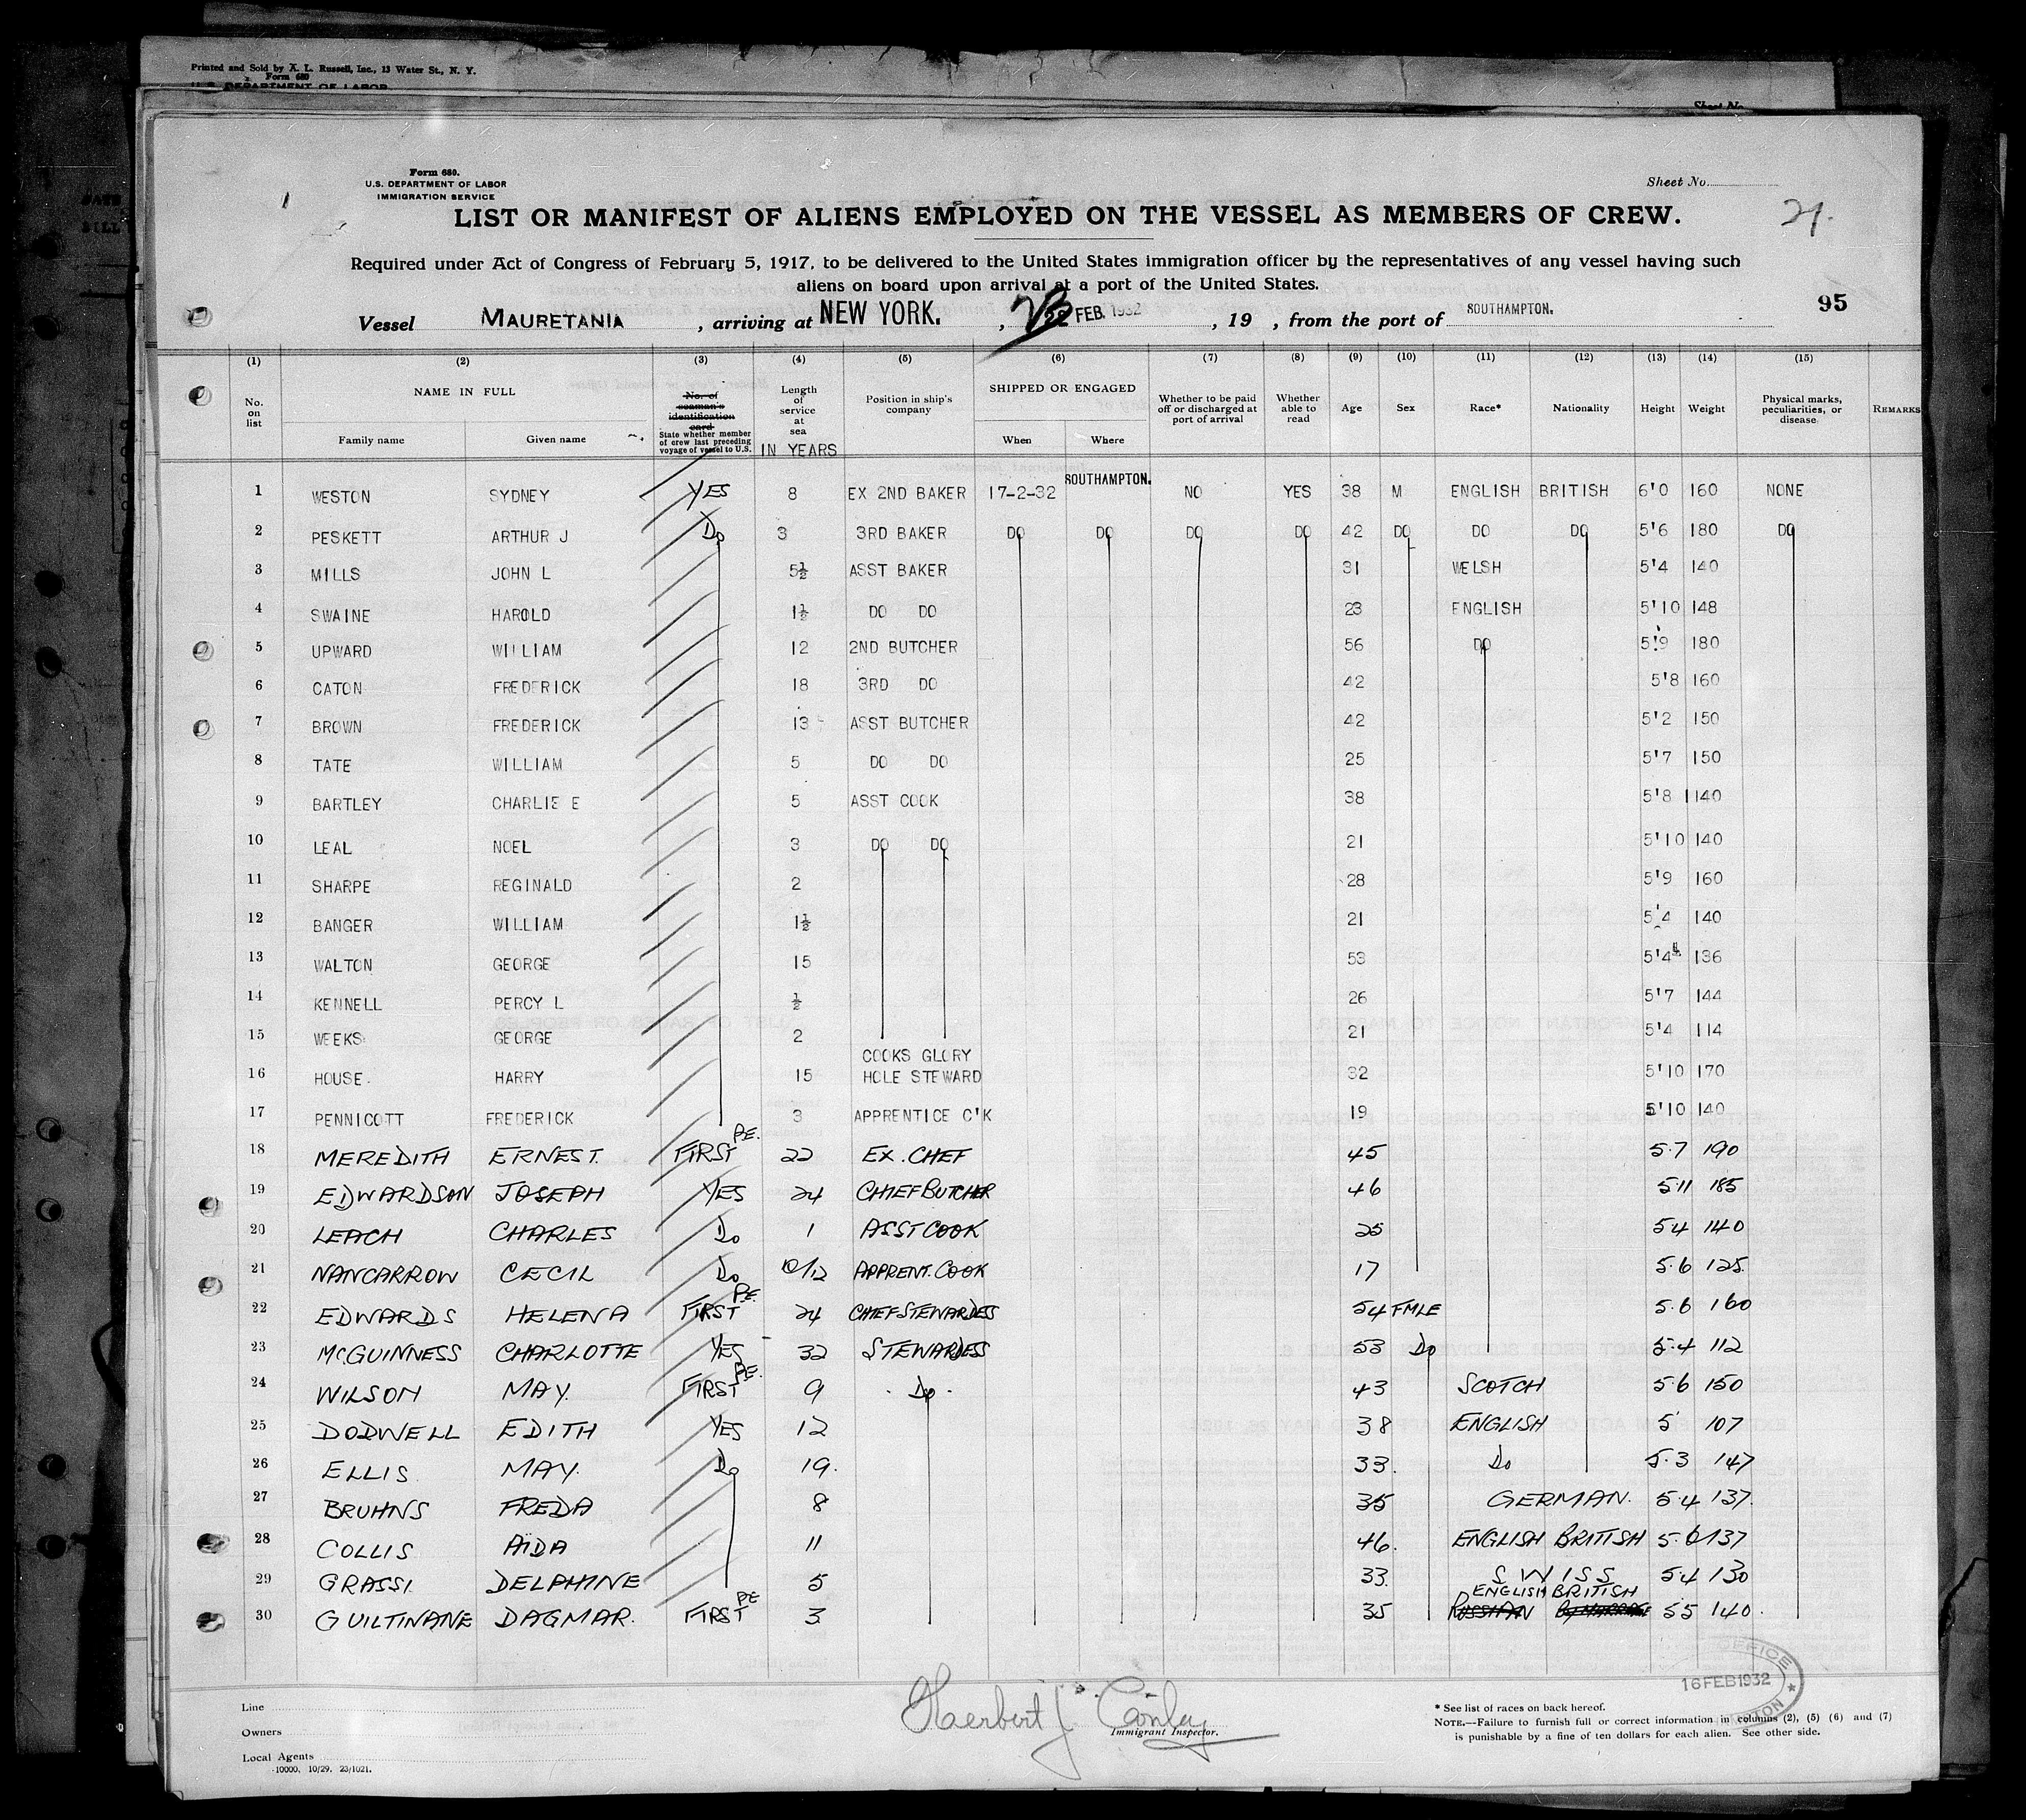 Printed and Sold by A. L. Russell, Inc., 13 Water St., N. Y.
Form 680
U.S. DEPARTMENT OF LABOR
Sheet No.
Form 680.
U.S. DEPARTMENT OF LABOR
IMMIGRATION SERVICE
Sheet No.
LIST OR MANIFEST OF ALIENS EMPLOYED ON THE VESSEL AS MEMBERS OF CREW.
Required under Act of Congress of February 5, 1917, to be delivered to the United States immigration officer by the representatives of any vessel having such
aliens on board upon arrival at a port of the United States.
95
Vessel MAURETANIA , arriving at NEW YORK. , 22 FEB. 1932 , 19 , from the port of SOUTHAMPTON.
(1) (2) (3) (4) (5) (6) (7) (8) (9) (10) (11) (12) (13) (14) (15)
No. on list NAME IN FULL Family name Given name No. of seaman's identification card State whether member of crew last preceding voyage of vessel to U.S. Length of service at sea IN YEARS Position in ship's company SHIPPED OR ENGAGED When Where Whether to be paid off or discharged at port of arrival Whether able to read Age Sex Race* Nationality Height Weight Physical marks, peculiarities, or disease REMARKS
1 WESTON SYDNEY YES 8 EX 2ND BAKER 17-2-32 SOUTHAMPTON. NO YES 38 M ENGLISH BRITISH 6'0 160 NONE
2 PESKETT ARTHUR J Do 3 3RD BAKER DO DO DO DO 42 DO DO DO 5'6 180 DO
3 MILLS JOHN L 5½ ASST BAKER 31 WELSH 5'4 140
4 SWAINE HAROLD 1½ DO DO 23 ENGLISH 5'10 148
5 UPWARD WILLIAM 12 2ND BUTCHER 56 DO 5'9 180
6 CATON FREDERICK 18 3RD DO 42 5'8 160
7 BROWN FREDERICK 13 ASST BUTCHER 42 5'2 150
8 TATE WILLIAM 5 DO DO 25 5'7 150
9 BARTLEY CHARLIE E 5 ASST COOK 38 5'8 140
10 LEAL NOEL 3 DO DO 21 5'10 140
11 SHARPE REGINALD 2 28 5'9 160
12 BANGER WILLIAM 1½ 21 5'4 140
13 WALTON GEORGE 15 53 5'4 136
14 KENNELL PERCY L ½ 26 5'7 144
15 WEEKS GEORGE 2 21 5'4 114
COOKS GLORY
16 HOUSE. HARRY 15 HOLE STEWARD 32 5'10 170
17 PENNICOTT FREDERICK 3 APPRENTICE C'K 19 5'10 140
18 MEREDITH ERNEST. FIRST P.E. 22 EX. CHEF 45 5.7 190
19 EDWARDSON JOSEPH YES 24 CHIEF BUTCHER 46 5.11 185
20 LEACH CHARLES Do 1 ASST COOK 25 5.4 140
21 NANCARROW CECIL Do 10/12 APPRENT. COOK 17 5.6 125
22 EDWARDS HELENA FIRST P.E. 24 CHIEF STEWARDESS 54 FMLE 5.6 160
23 McGUINNESS CHARLOTTE YES 32 STEWARDESS 53 Do 5.4 112
24 WILSON MAY. FIRST P.E. 9 Do 43 SCOTCH 5.6 150
25 DODWELL EDITH YES 12 38 ENGLISH 5' 107
26 ELLIS MAY. Do 19. 33. Do 5.3 147
27 BRUHNS FREDA 8 35 GERMAN. 5.4 137.
28 COLLIS AÏDA 11 46. ENGLISH BRITISH 5.6 137
29 GRASSI. DELPHINE 5 33. SWISS 5.4 130
ENGLISH BRITISH
30 GUILTINANE DAGMAR. FIRST P.E. 3 35 RUSSIAN By MARRIAGE 5.5 140.
16 FEB 1932
Line
Owners
Local Agents
10000. 10/29. 23/1021.
Herbert J. Conley
Immigrant Inspector.
* See list of races on back hereof.
NOTE.—Failure to furnish full or correct information in columns (2), (5) (6) and (7)
is punishable by a fine of ten dollars for each alien. See other side.